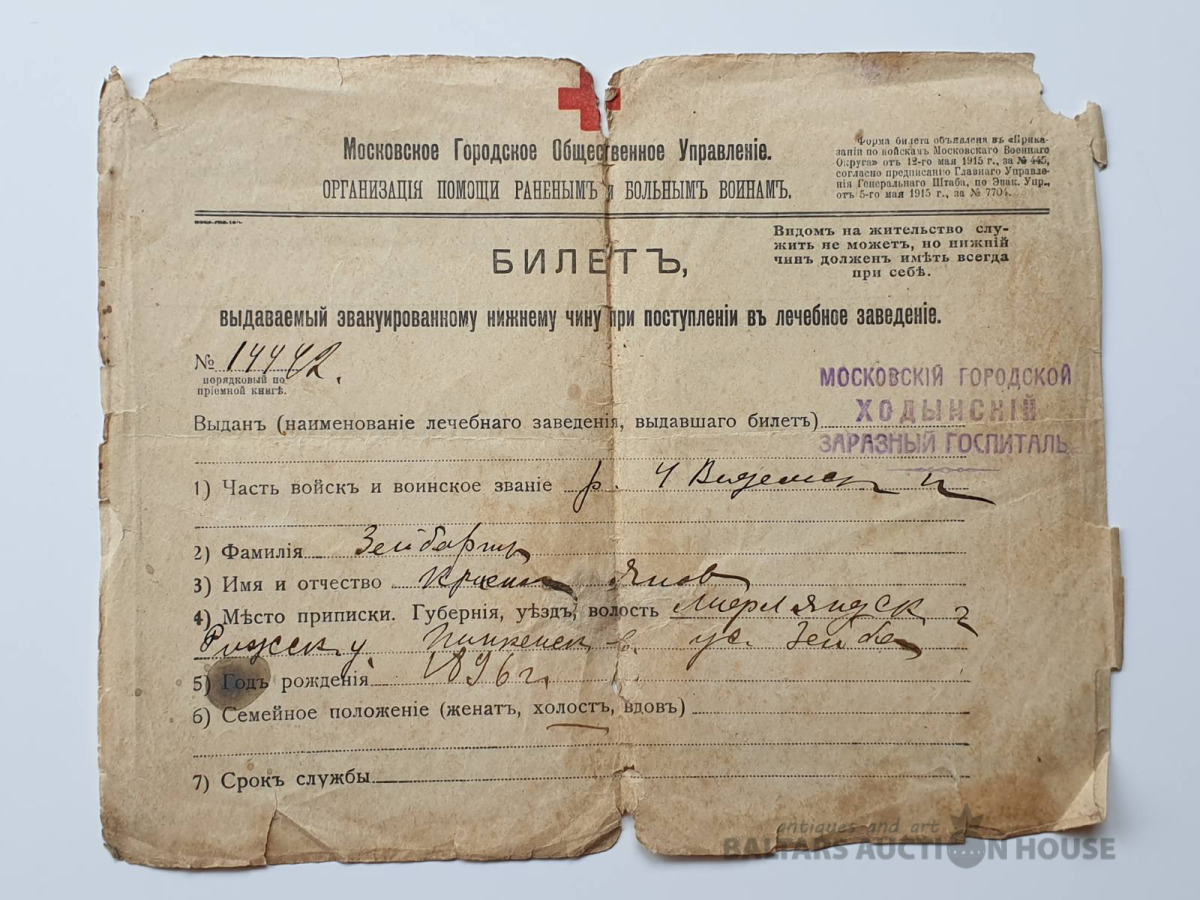 Московское Городское Общественное Управленіе.
ОРГАНИЗАЦІЯ ПОМОЩИ РАНЕНЫМЪ и БОЛЬНЫМЪ ВОИНАМЪ.
Форма билета объявлена въ «Прика-
заніи по войскамъ Московскаго Военнаго
Округа» отъ 12-го мая 1915 г., за № 445,
согласно предписанію Главнаго Управле-
нія Генеральнаго Штаба, по Эвак. Упр.,
отъ 5-го мая 1915 г., за № 7704.
Видомъ на жительство слу-
жить не можетъ, но нижній
чинъ долженъ имѣть всегда
при себѣ.
БИЛЕТЪ,
выдаваемый эвакуированному нижнему чину при поступленіи въ лечебное заведеніе.
№ 14442.
порядковый по
пріемной книгѣ.
МОСКОВСКІЙ ГОРОДСКОЙ
ХОДЫНСКІЙ
ЗАРАЗНЫЙ ГОСПИТАЛЬ
Выданъ (наименованіе лечебнаго заведенія, выдавшаго билетъ)
1) Часть войскъ и воинское званіе р. 4 Видземск п
2) Фамилія
3) Имя и отчество Янов
4) Мѣсто приписки. Губернія, уѣздъ, волость Лифляндск г
Рижск у. Пинкенск в. ус. Зейбо
5) Годъ рожденія 1896 г.
6) Семейное положеніе (женатъ, холостъ, вдовъ)
7) Срокъ службы
antiques and art
BALTARS AUCTION HOUSE